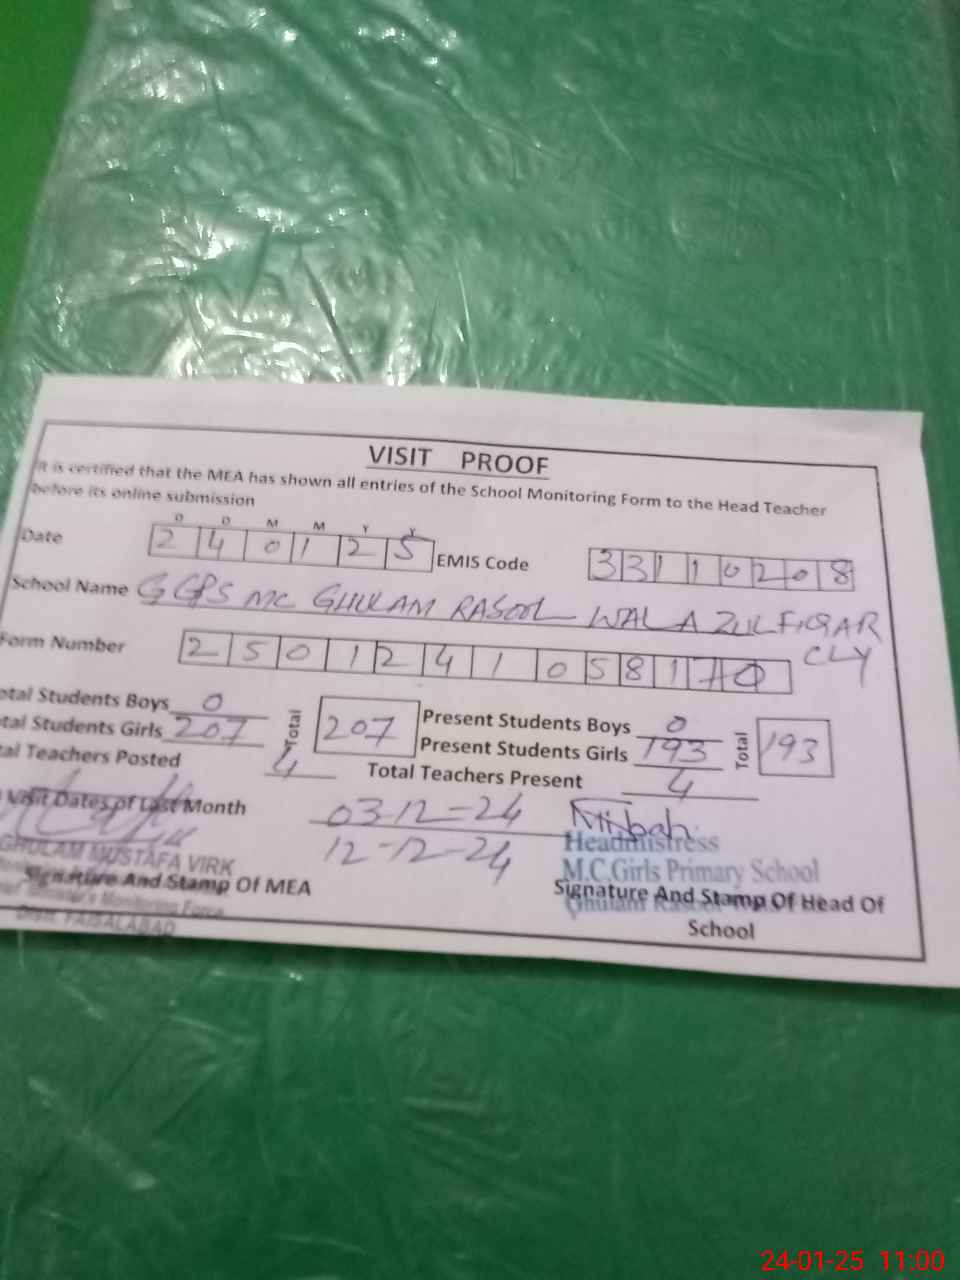 VISIT PROOF
It is certified that the MEA has shown all entries of the School Monitoring Form to the Head Teacher
before its online submission
D D M M Y Y
Date 2 4 0 1 2 5 EMIS Code 3 3 1 1 0 2 0 8
School Name GGPS MC GHULAM RASOOL WALA ZULFIQAR
CLY
Form Number 2 5 0 1 2 4 1 0 5 8 1
otal Students Boys 0 Present Students Boys 0
tal Students Girls 207 Total 207 Present Students Girls 193 Total 193
al Teachers Posted 4 Total Teachers Present 4
Visit Dates of Last Month 03-12-24 Misbah
12-12-24 Headmistress
GHULAM MUSTAFA VIRK M.C.Girls Primary School
Signature And Stamp Of MEA Signature And Stamp Of Head Of
Monitoring Force Ghulam
Distt. FAISALABAD School
24-01-25 11:00